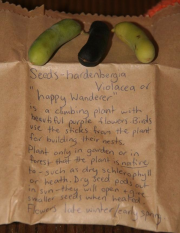 Seeds:- hardenbergia
" Violacea or
" happy Wanderer"
is a climbing plant with
beautiful purple flowers. Birds
use the sticks from the plant
for building their nests.
Plant only in garden or in
forest that the plant is native
to - such as dry schlerophyll
or heath. Dry seed pods in
sun - they will open to
smaller seeds when heated
Flowers late winter/early spring